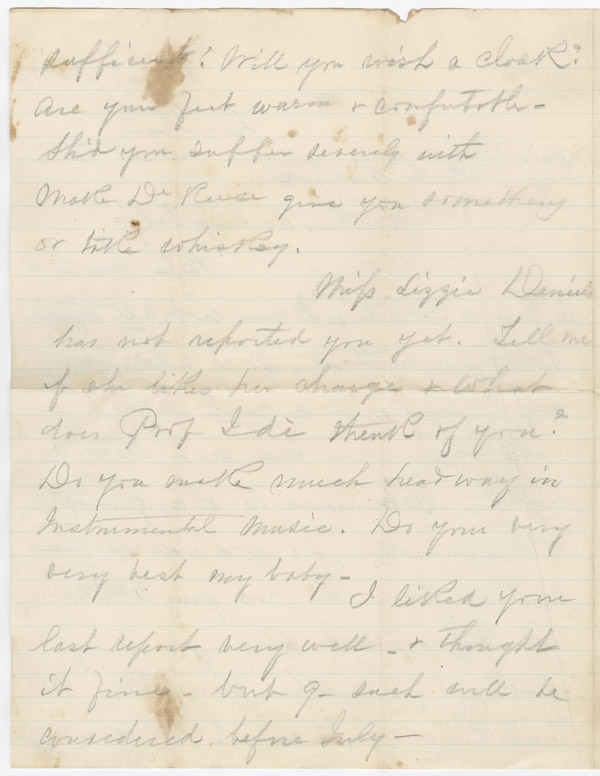 sufficient! Will you wish a cloak?
Are your feet warm & comfortable -
Sh'd you suffer severely with
make Dr Reese give you something
or take whiskey.
Miss Lizzie Daniels
has not reported you yet. Tell me
if she likes her charge & what
does Prof Ide think of you?
Do you make much headway in
Instrumental Music. Do your very
very best my baby -
I liked your
last report very well - & thought
it fine - but 9 - such will be
considered before July -